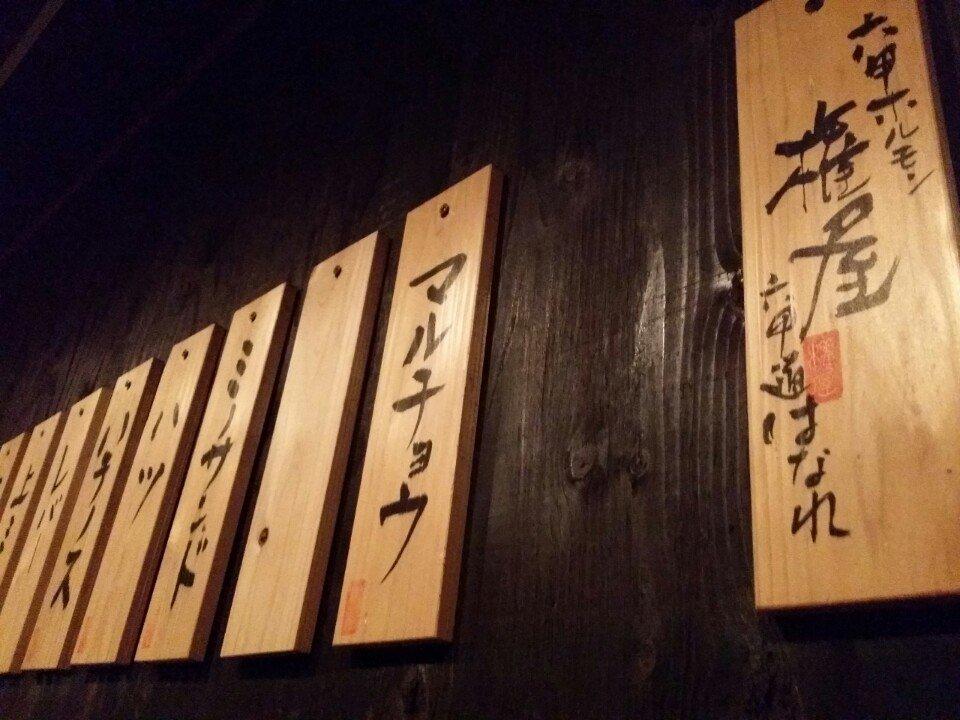 六甲ホルモン
権屋
六甲道はなれ
マルチョウ
ミノサンド
ハツ
ハチノス
レバー
上ミ